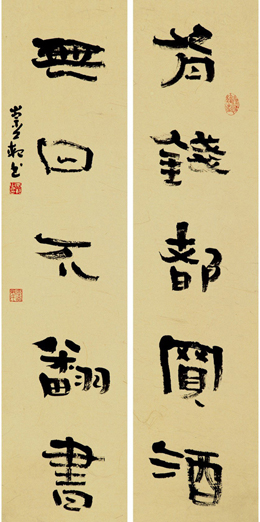 有錢都買酒
無日不翻書